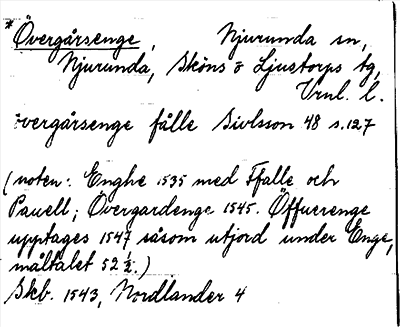 *Övergårsenge, Njurunda sn,
Njurunda, Sköns o Ljustorps tg,
Vrnl. l.
övergårsenge fålle Sivlsson 48 s.127
(noten: Enghe 1535 med Ffalle och
Pauell; Övergardenge 1545. Öffuerenge
upptages 1547 såsom utjord under Enge,
måltalet 52 ½.)
Skb. 1543, Nordlander 4